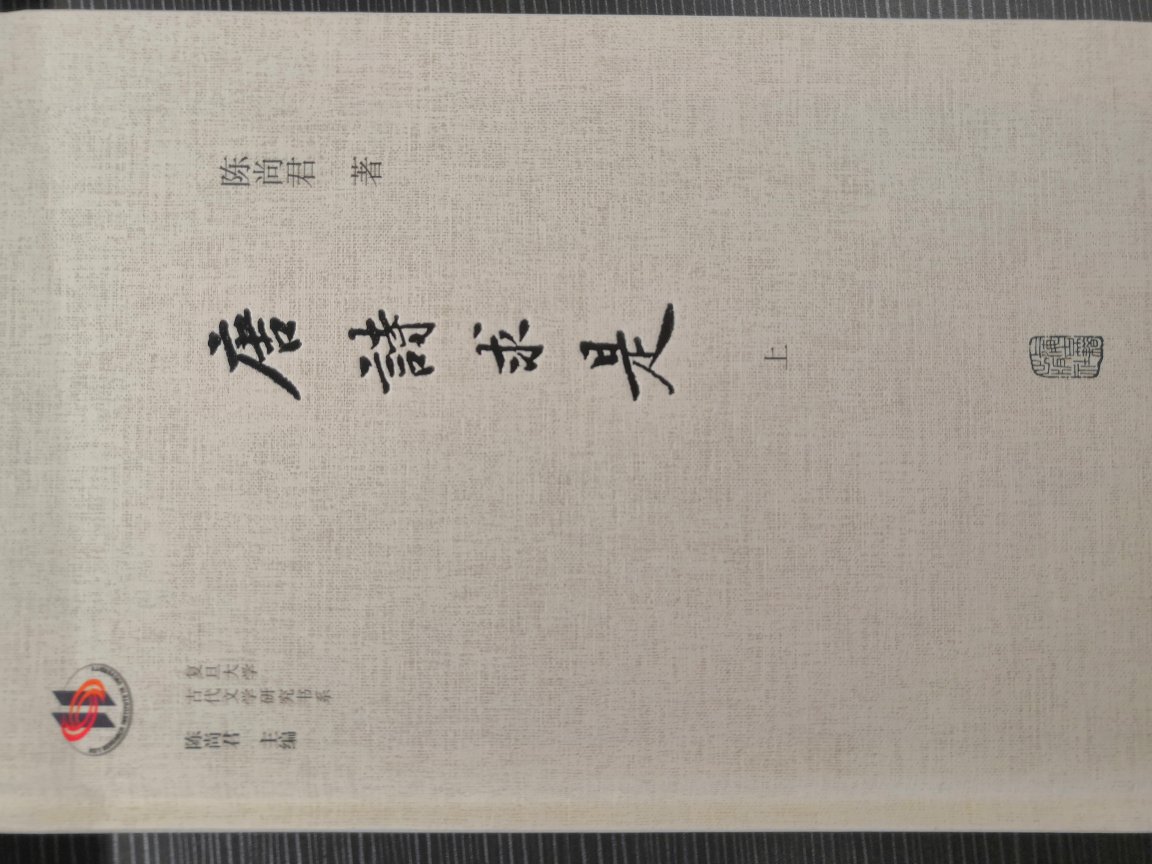 陈尚君 著
唐詩求是
上
复旦大学
古代文学研究书系
陈尚君 主编